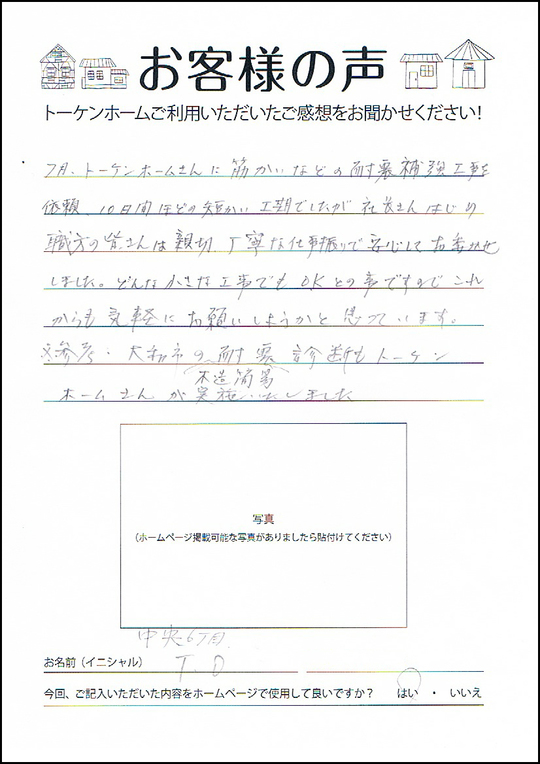 お客様の声
トーケンホームご利用いただいたご感想をお聞かせください！
7月、トーケンホームさんに筋かいなどの耐震補強工事を
依頼、10日間ほどの短かい工期でしたが社長さんはじめ
職方の皆さんは親切、丁寧な仕事振りで安心してお委せ
しました。どんな小さな工事でもOKとの事ですのでこれ
からも気軽にお願いしようかと思っています。
※参考・大和市の耐震診断もトーケン
木造簡易
ホームさんが実施いたしました
写真
（ホームページ掲載可能な写真がありましたら貼付けてください）
中央6丁目
お名前（イニシャル） T.O
今回、ご記入いただいた内容をホームページで使用して良いですか？ はい ・ いいえ